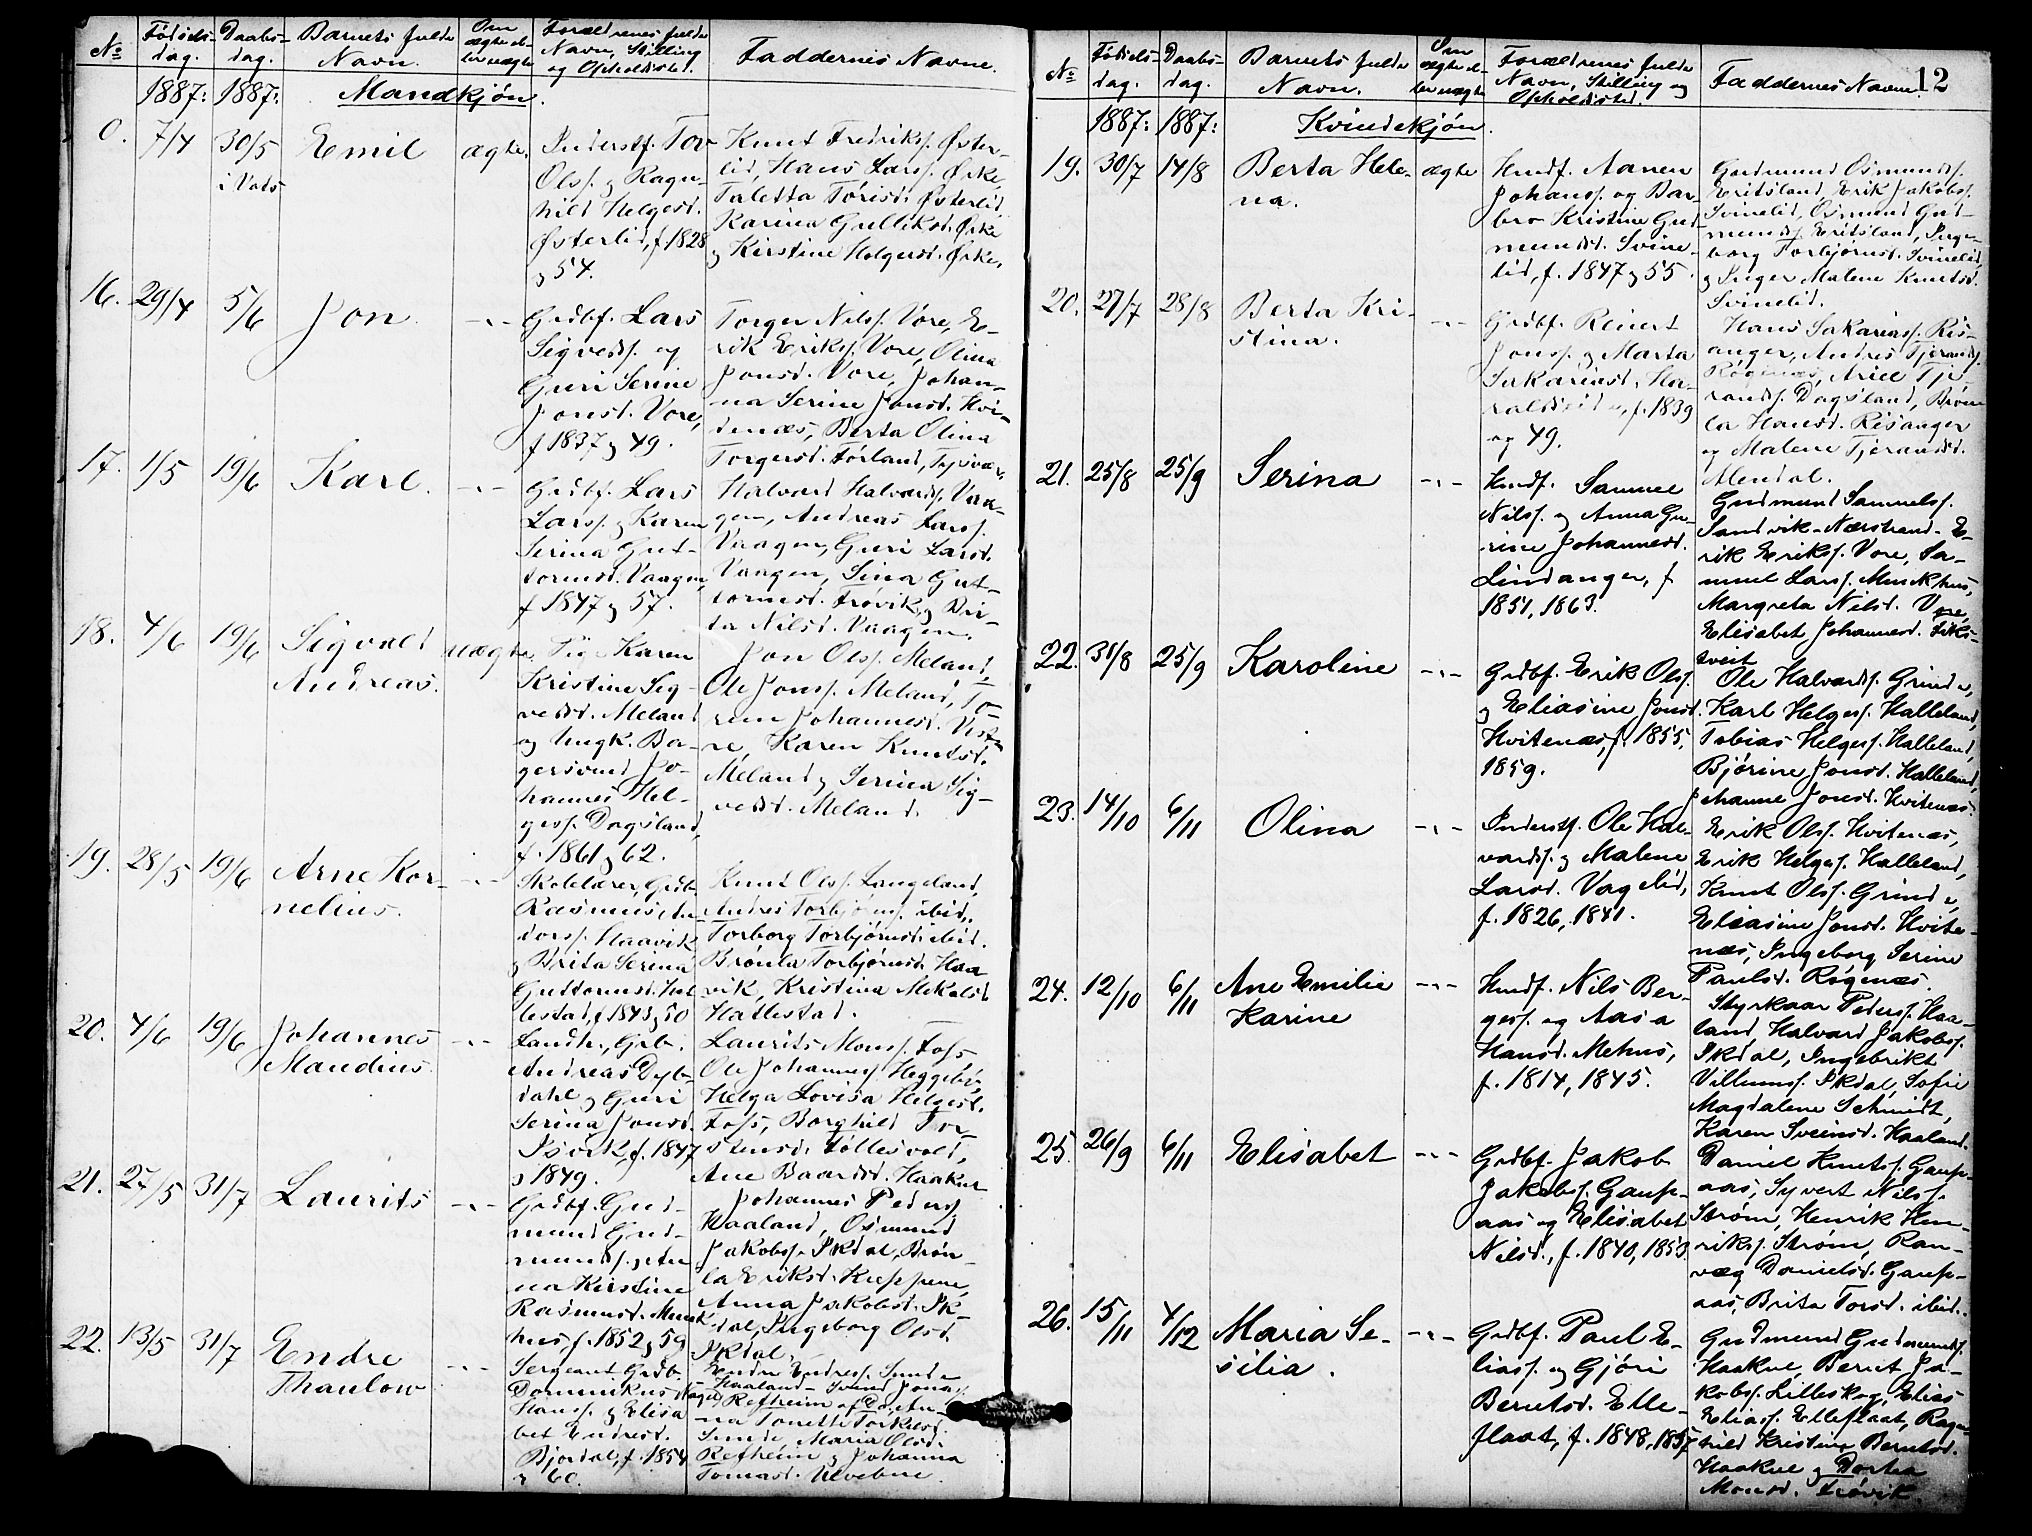 No Fødsels- dag. Daabs- dag. Barnets fulde Navn. Om ægte el- ler uægte Forældrenes fulde Navn, Stilling og Opholdssted. Faddernes Navne.
1887: 1887: Mandkjøn.
0. 7/4 30/5 i Vats Emil ægte.
Inderstf. Tor
Ols. og Ragn-
hild Helgesd.
Østerlid, f. 1828
og 54.
Knut Fredriks. Øster-
lid, Hans Lars. Ørke,
Taletta Tørisd. Østerlid,
Karina Gulliksd. Ørke
og Kirstine Helgesd. Ørke.
16. 29/4 5/6 Jon. -"-
Grdbf. Lars
Sigveds. og
Guri Serine
Jonsd. Vore,
f 1837 og 49.
Torger Nils. Vore, E-
rik Eriks. Vore, Olina
Jonsd. Vore, Johan-
na Serine Jonsd. Hvi-
tenæs, Berta Olina
Torgersd. Førland, Tysvær.
17. 1/5 19/6 Karl. -"-
Grdbf. Lars
Lars. og Karen
Serina Gut-
tormsd. Vaagen,
f 1847 og 57.
Halvard Halvards. Vaa-
gen, Andreas Lars.
Vaagen, Guri Larsd.
Vaagen, Sina Gut-
tormsd. Frøvik, og Bri-
ta Nilsd. Vaagen.
18. 4/6 19/6 Sigvald Andreas. uægte
Pige Karen
Kristine Sig-
vedsd. Meland
og Ungk. Ba-
gersvend Jo-
hannes Hel-
ges. Dagsland,
f. 1861 og 62.
Jon Ols. Meland,
Ole Jons. Meland, To-
ren Johannesd. Vist-
re, Karen Knutsd.
Meland og Serina Sig-
vedsd. Meland.
19. 28/5 19/6 Arne Kor- nelius. -"-
Skolelærer, Grdb.
Rasmus An-
ders. Haavik
og Brita Serina
Guttormsd. Hal-
lestad, f 1843 og 50
Knut Ols. Langeland,
Andres Torbjørns. ibid.,
Torborg Torbjørnsd. ibid.
Brønla Torbjørnsd. Haa
vik, Kristina Mikalsd
Hallestad.
20. 4/6 19/6 Johannes Mandius. -"-
Landh., Grb.
Andreas Dyb-
dahl og Guri
Serina Jonsd.
Isvik, f. 1847
og 1849.
Laurits Mons. Foss
Ole Johannes. Heggebø,
Helga Lovisa Helgesd.
Foss, Borghild Tor-
stensd. Føllesvold,
Ane Baardsd. Haakul
21. 27/5 31/7 Laurits -"-
Grdbf. Gud-
mund Gud-
munds. og An
na Kirstine
Rasmusd. Munk-
hus, f. 1852 og 59
Johannes Peders.
Haaland, Osmund
Jakobs. Ikdal, Brøn
la Eriksd. Kjeppene,
Anna Jakobsd. Ik-
dal, Ingeborg Olsd.
Ikdal.
22. 13/5 31/7 Endre Thaulow -"-
Sergeant, Grdb.
Dominikus
Hans. og Elisa
bet Endresd.
Bjordal, f. 1854
og 60.
Endre Endres. Sunde
Haaland, Svend Jonas.
Refheim af Do, An-
na Tonette Torkelsd.
Sunde Maria Olsd.
Refheim og Johanna
Tomasd. Ulvebne.
12
No Fødsels- dag. Daabs- dag. Barnets fulde Navn. Om ægte el- ler uægte Forældrenes fulde Navn, Stilling og Opholdssted. Faddernes Navne.
1887: 1887: Kvindekjøn.
19. 30/7 14/8 Berta Hele- na. ægte
Husf. Aanen
Johans. og Bar-
bro Kristine Gud-
mundsd. Svine-
lid, f. 1847 og 55.
Gudmund Osmunds.
Eritsland, Erik Jakobs.
Svinelid, Osmund Gud-
munds. Eritsland, Inge-
borg Torbjørnsd. Svinelid,
og Inger Malene Knutsd.
Svinelid.
20. 27/7 28/8 Berta Kri- stina. -"-
Grdbf. Reinert
Jons. og Marta
Sakariasd. Ha-
raldseide, f. 1839
og 49.
Hans Sakarias. Ris-
anger, Andres Tjerands.
Røgenæs, Ariel Tje
rands. Dagsland, Brøn
la Hansd. Risanger
og Malene Tjerandsd.
Alendal.
21. 25/8 25/9 Serina -"-
Husf. Samuel
Nils. og Anna Gu-
rine Johannesd.
Lindanger, f
1851, 1863.
Gudmund Samuels.
Sandvik - Nærstrand - E-
rik Eriks. Vore, Sa-
muel Lars. Munkhus,
Margreta Nilsd. Vore,
Elisabet Johannesd. Fiks-
tveit
22. 31/8 25/9 Karoline -"-
Grdbf. Erik Ols.
og Eliasine Jonsd.
Hvitenæs, f. 1855,
1859.
Ole Halvards. Grinde,
Karl Helges. Halleland,
Tobias Helges. Halleland,
Bjørine Jonsd. Halleland,
Johanne Jonsd. Hvitenæs.
23. 14/10 6/11 Olina -"-
Inderstf. Ole Hal-
vards. og Malene
Larsd. Vagelid,
f. 1826, 1841.
Erik Ols. Hvitenæs,
Erik Helges. Halleland,
Knut Ols. Grinde,
Eliasine Jonsd. Hvite-
næs, Ingeborg Serine
Paulsd. Røgenæs.
24. 12/10 6/11 Ane Emilie Karine -"-
Husf. Nils Ber-
ges. og Aasa
Hansd. Mehus,
f. 1814, 1845.
Styrkaar Peders. Haa-
land, Halvard Jakobs.
Ikdal, Ingebrikt
Villums. Ikdal, Sofie
Magdalene Schmidt,
Karen Sveinsd. Haaland.
25. 26/9 6/11 Elisabet -"-
Grdbf. Jakob
Jakobs. Gaup-
aas og Elisabet
Nilsd., f. 1840, 1853.
Daniel Knuts. Gaup-
aas, Syvert Nils.
Strøm, Henrik Hen-
riks. Strøm, Ran-
væg Danielsd. Gaup-
aas, Brita Torsd. ibid.
26. 15/11 4/12 Maria Se- silia. -"-
Grdbf. Paul E-
lias. og Gjøri
Berntsd. Elle-
flaat, f. 1848, 1857
Gudmund Gudmunds.
Haakul, Bernt Ja-
kobs. Lilleskog, Elias
Elias. Elleflaat, Ragn-
hild Kristine Berntsd.
Haakul og Dortea
Monsd. Frøvik.